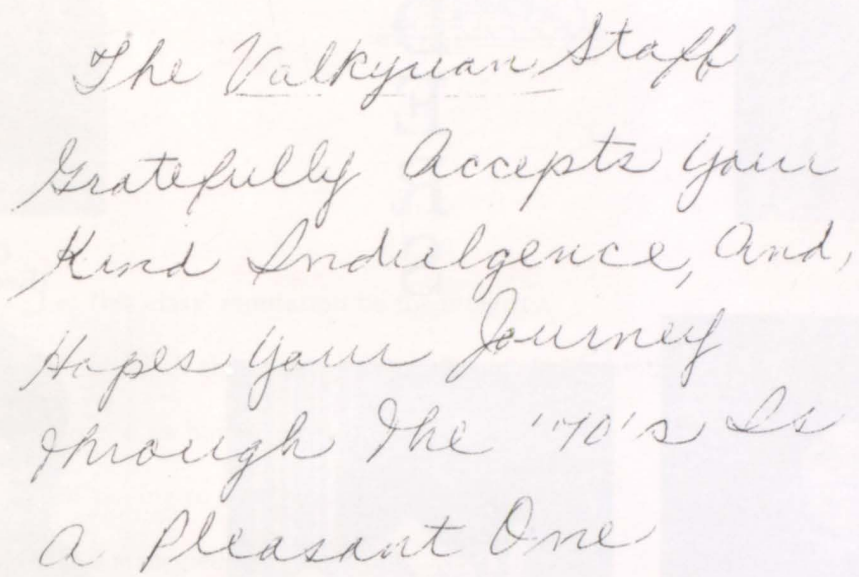 The Valkyrian Staff
Gratefully Accepts Your
Kind Indulgence, And,
Hopes Your Journey
Through The '70's Is
A Pleasant One